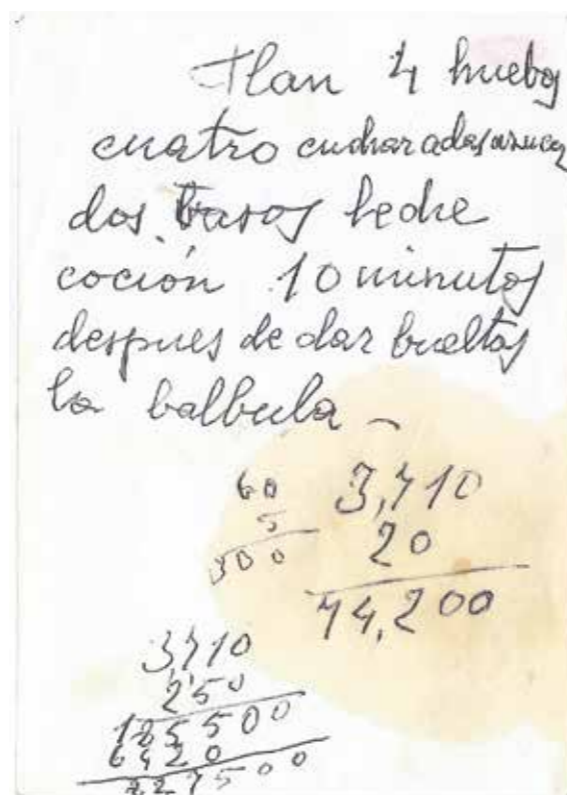 Flan 4 huebos
cuatro cucharadas azucar
dos vasos leche
coción 10 minutos
despues de dar bueltas
la balbula -
60
5
300
3,710
20
74,200
3,710
250
185500